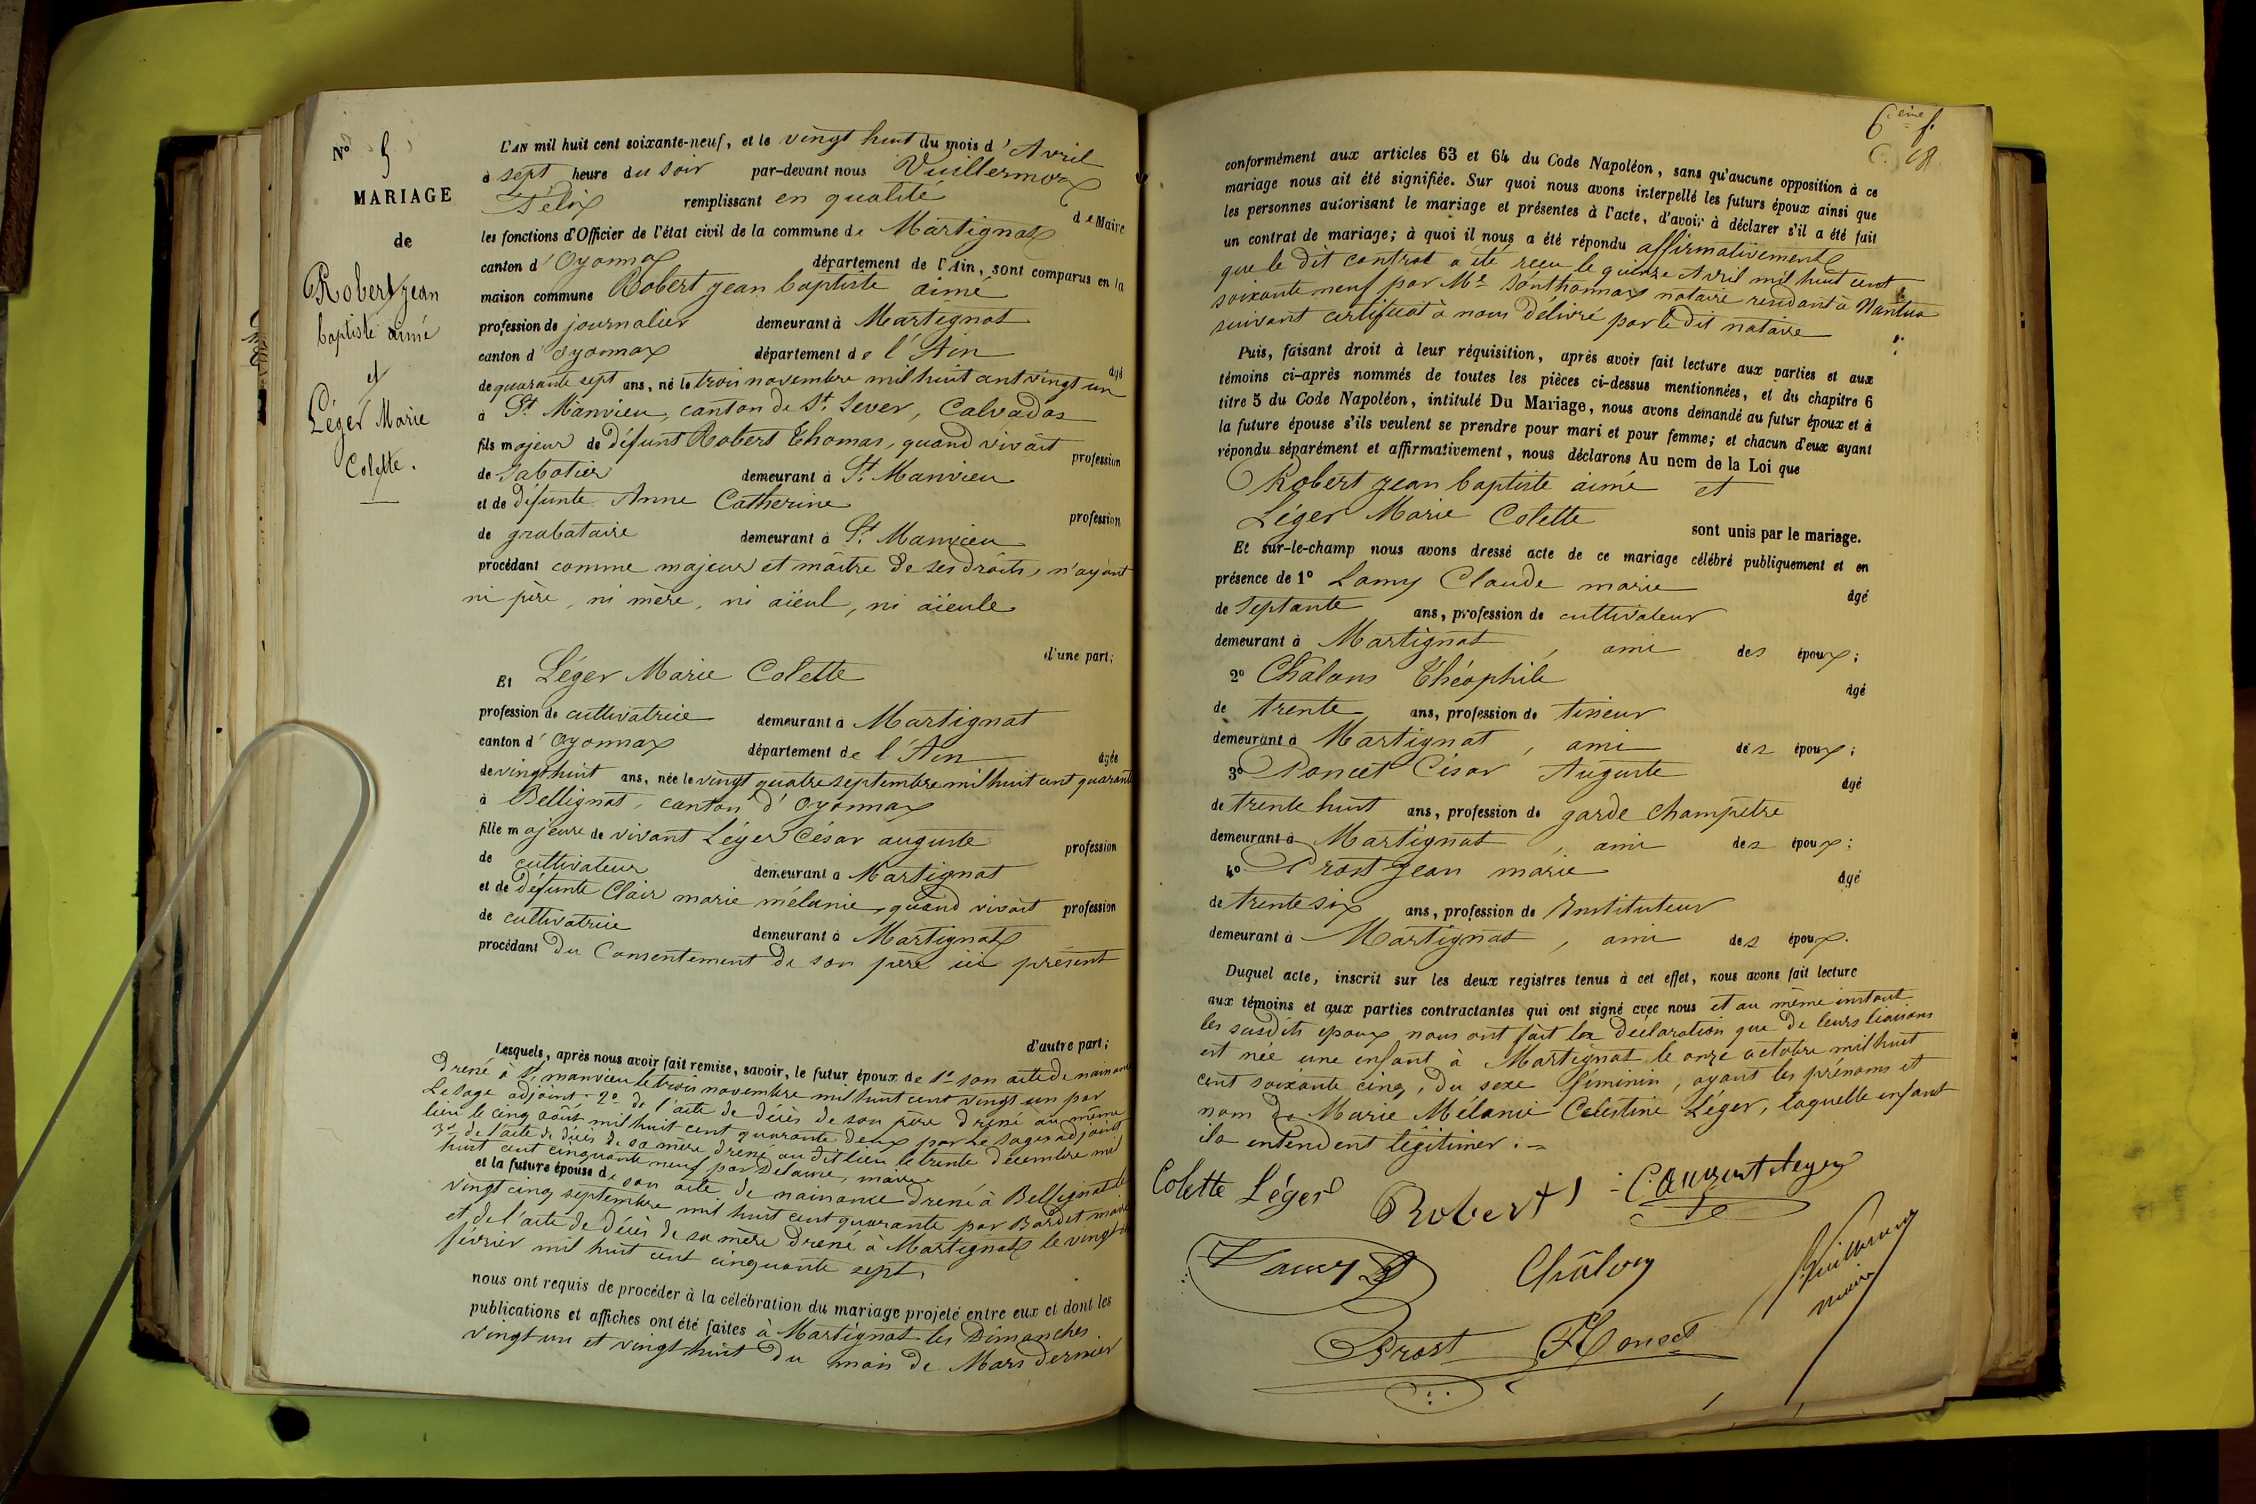 N° 5
MARIAGE
de
Robert Jean
baptiste aimé
et
Léger Marie
Colette.
L'AN mil huit cent soixante-neuf, et le vingt huit du mois d'Avril
à sept heure du soir par-devant nous Vuillermoz
Félix remplissant en qualité de Maire
les fonctions d'Officier de l'état civil de la commune de Martignat
canton d'Oyonnax département de l'Ain, sont comparus en la
maison commune Robert Jean baptiste aimé
profession de journalier demeurant à Martignat
canton d'Oyonnax département de l'Ain âgé
de quarante sept ans, né le trois novembre mil huit cent vingt un
à St Manvieu, canton de St Sever, Calvados
fils majeur de défunt Robert Thomas, quand vivait profession
de Sabotier demeurant à St Manvieu
et de défunte Anne Catherine profession
de grabataire demeurant à St Manvieu
procédant comme majeur et maître de ses droits, n'ayant
ni père, ni mère, ni aïeul, ni aïeule
d'une part;
Et Léger Marie Colette
profession de cultivatrice demeurant à Martignat
canton d'Oyonnax département de l'Ain âgée
de vingt huit ans, née le vingt quatre septembre mil huit cent quarante
à Bellignat, canton d'Oyonnax
fille majeure de vivant Léger César auguste profession
de cultivateur demeurant à Martignat
et de défunte Clair marie mélanie, quand vivait profession
de cultivatrice demeurant à Martignat
procédant du Consentement de son père ici présent
d'autre part;
Lesquels, après nous avoir fait remise, savoir, le futur époux de 1° son acte de naissance
dréné à St manvieu le trois novembre mil huit cent vingt un par
Lesage adjoint. 2° de l'acte de décès de son père dréné au même
lieu le cinq août mil huit cent quarante deux par Lesage adjoint
3° de l'acte de décès de sa mère dréné au dit lieu le trente décembre mil
huit cent cinquante neuf par Delaune, maire
et la future épouse de son acte de naissance dréné à Bellignat le
vingt cinq septembre mil huit cent quarante par Bardet maire
et de l'acte de décès de sa mère dréné à Martignat le vingt
février mil huit cent cinquante sept,
nous ont requis de procéder à la célébration du mariage projeté entre eux et dont les
publications et affiches ont été faites à Martignat les Dimanches
vingt un et vingt huit du mois de Mars dernier
6ème f.
conformément aux articles 63 et 64 du Code Napoléon, sans qu'aucune opposition à ce
mariage nous ait été signifiée. Sur quoi nous avons interpellé les futurs époux ainsi que
les personnes autorisant le mariage et présentes à l'acte, d'avoir à déclarer s'il a été fait
un contrat de mariage; à quoi il nous a été répondu affirmativement
que le dit contrat a été reçu le quinze Avril mil huit cent
soixante neuf par Me Sonthonnax notaire résidant à Nantua
suivant certificat à nous délivré par le dit notaire
Puis, faisant droit à leur réquisition, après avoir fait lecture aux parties et aux
témoins ci-après nommés de toutes les pièces ci-dessus mentionnées, et du chapitre 6
titre 5 du Code Napoléon, intitulé Du Mariage, nous avons demandé au futur époux et à
la future épouse s'ils veulent se prendre pour mari et pour femme; et chacun d'eux ayant
répondu séparément et affirmativement, nous déclarons Au nom de la Loi que
Robert Jean baptiste aimé et
Léger Marie Colette sont unis par le mariage.
Et sur-le-champ nous avons dressé acte de ce mariage célébré publiquement et en
présence de 1° Lamy Claude marie âgé
de Septante ans, profession de cultivateur
demeurant à Martignat, ami des époux;
2° Chalons Théophile âgé
de trente ans, profession de tisseur
demeurant à Martignat, ami des époux;
3° Poncet César Auguste âgé
de trente huit ans, profession de garde champêtre
demeurant à Martignat, ami des époux;
4° Prost Jean marie âgé
de trente six ans, profession de Instituteur
demeurant à Martignat, ami des époux.
Duquel acte, inscrit sur les deux registres tenus à cet effet, nous avons fait lecture
aux témoins et aux parties contractantes qui ont signé avec nous et au même instant
les susdits époux nous ont fait la déclaration que de leurs liaisons
est née une enfant à Martignat le onze octobre mil huit
cent soixante cinq, du sexe féminin, ayant les prénoms et
nom de Marie Mélanie Célestine Léger, laquelle enfant
ils entendent légitimer.
Colette Léger Robert
Lamy
maire
Prost